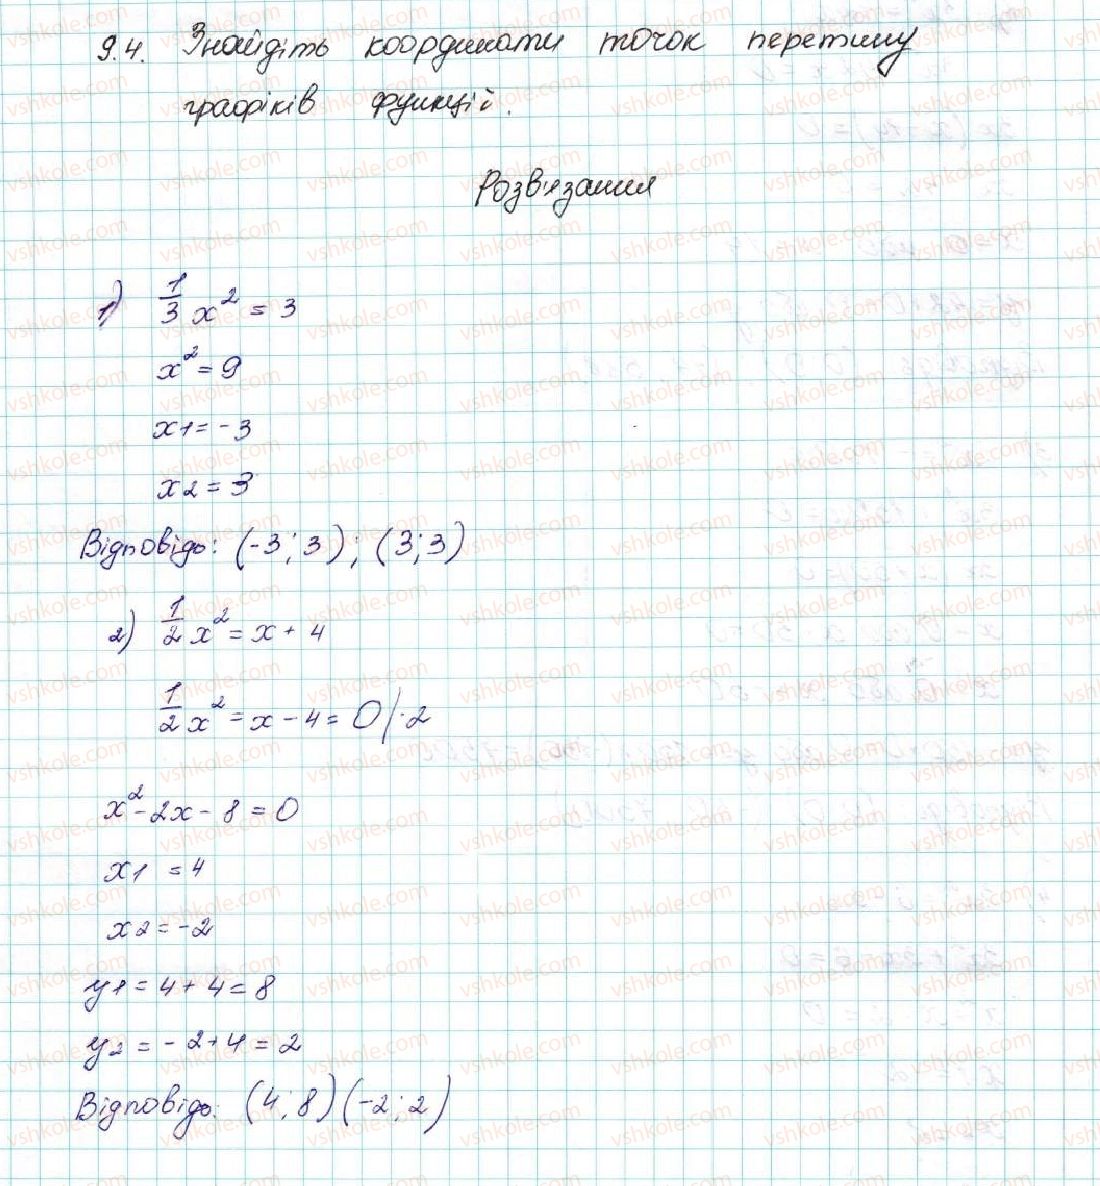 9.4. Знайдіть координати точок перетину
графіків функцій.
Розв'язання
1) 1/3 x² = 3
x² = 9
x1 = -3
x2 = 3
Відповідь: (-3; 3); (3; 3)
2) 1/2 x² = x + 4
1/2 x² = x - 4 = 0 / · 2
x² - 2x - 8 = 0
x1 = 4
x2 = -2
y1 = 4 + 4 = 8
y2 = -2 + 4 = 2
Відповідь: (4; 8) (-2; 2)